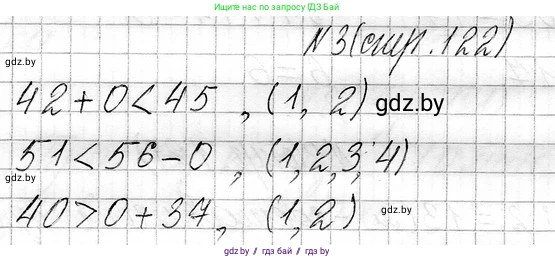 Пишите нам и присоединяйтесь в группу в телеграм
N 3 (стр. 122)
gdz.by
42+0<45, (1, 2) gdz.by
51<56-0, (1, 2, 3, 4)
gdz.by
40>0+37, (1, 2) gdz.by
gdz.by / гдз бай / гдз by